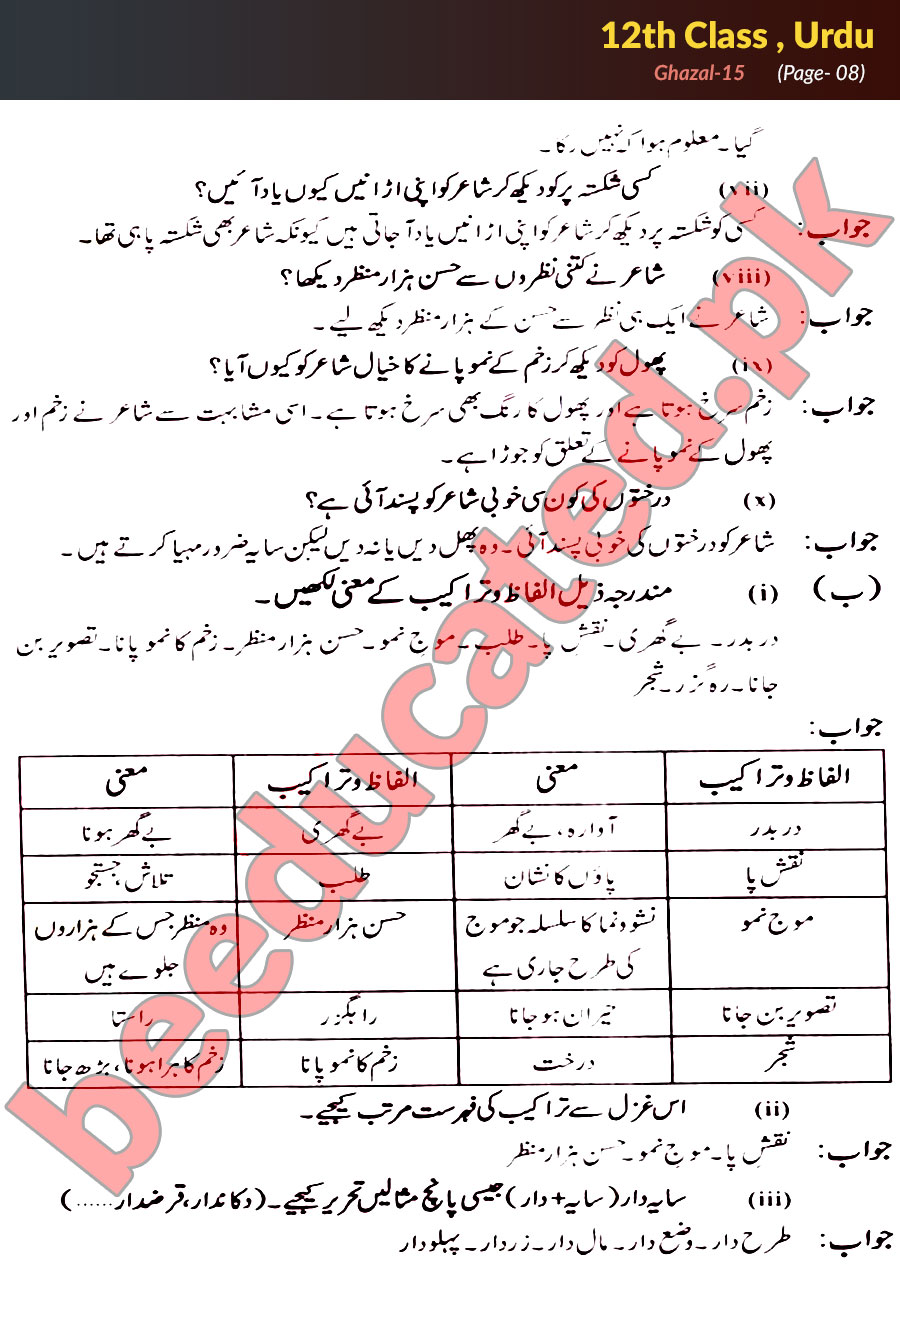 12th Class , Urdu
Ghazal-15 (Page- 08)
گیا۔ معلوم ہوا کہ نہیں رکا۔
(vii) کسی شکستہ پر کو دیکھ کر شاعر کو اپنی اڑانیں کیوں یاد آئیں؟
جواب: کسی کو شکستہ پر دیکھ کر شاعر کو اپنی اڑانیں یاد آ جاتی ہیں کیونکہ شاعر بھی شکستہ پا ہی تھا۔
(viii) شاعر نے کتنی نظروں سے حسن ہزار منظر دیکھا؟
جواب: شاعر نے ایک ہی نظر سے حسن کے ہزار منظر دیکھ لیے۔
(ix) پھول کو دیکھ کر زخم کے نمو پانے کا خیال شاعر کو کیوں آیا؟
جواب: زخم سرخ ہوتا ہے اور پھول کا رنگ بھی سرخ ہوتا ہے۔ اسی مشابہت سے شاعر نے زخم اور
پھول کے نمو پانے کے تعلق کو جوڑا ہے۔
(x) درختوں کی کون سی خوبی شاعر کو پسند آئی ہے؟
جواب: شاعر کو درختوں کی خوبی پسند آئی۔ وہ پھل دیں یا نہ دیں لیکن سایہ ضرور مہیا کرتے ہیں۔
(ب) (i) مندرجہ ذیل الفاظ و تراکیب کے معنی لکھیں۔
در بدر۔ بے گھری۔ نقشِ پا۔ طلب۔ موجِ نمو۔ حسن ہزار منظر۔ زخم کا نمو پانا۔ تصویر بن
جانا۔ رہ گزر۔ شجر
جواب:
الفاظ و تراکیب معنی الفاظ و تراکیب معنی
در بدر آوارہ، بے گھر بے گھری بے گھر ہونا
نقش پا پاؤں کا نشان طلب تلاش، جستجو
موج نمو نشوونما کا سلسلہ جو موج حسن ہزار منظر وہ منظر جس کے ہزاروں
کی طرح جاری ہے جلوے ہیں
تصویر بن جانا حیران ہو جانا راہگزر راستا
شجر درخت زخم کا نمو پانا زخم کا ہرا ہونا، بڑھ جانا
(ii) اس غزل سے تراکیب کی فہرست مرتب کیجیے۔
جواب: نقشِ پا۔ موجِ نمو۔ حسن ہزار منظر
(iii) سایہ دار (سایہ + دار) جیسی پانچ مثالیں تحریر کیجیے۔ (دکاندار، قرضدار......)
جواب: طرح دار۔ وضع دار۔ مال دار۔ زردار۔ پہلودار
beeducated.pk